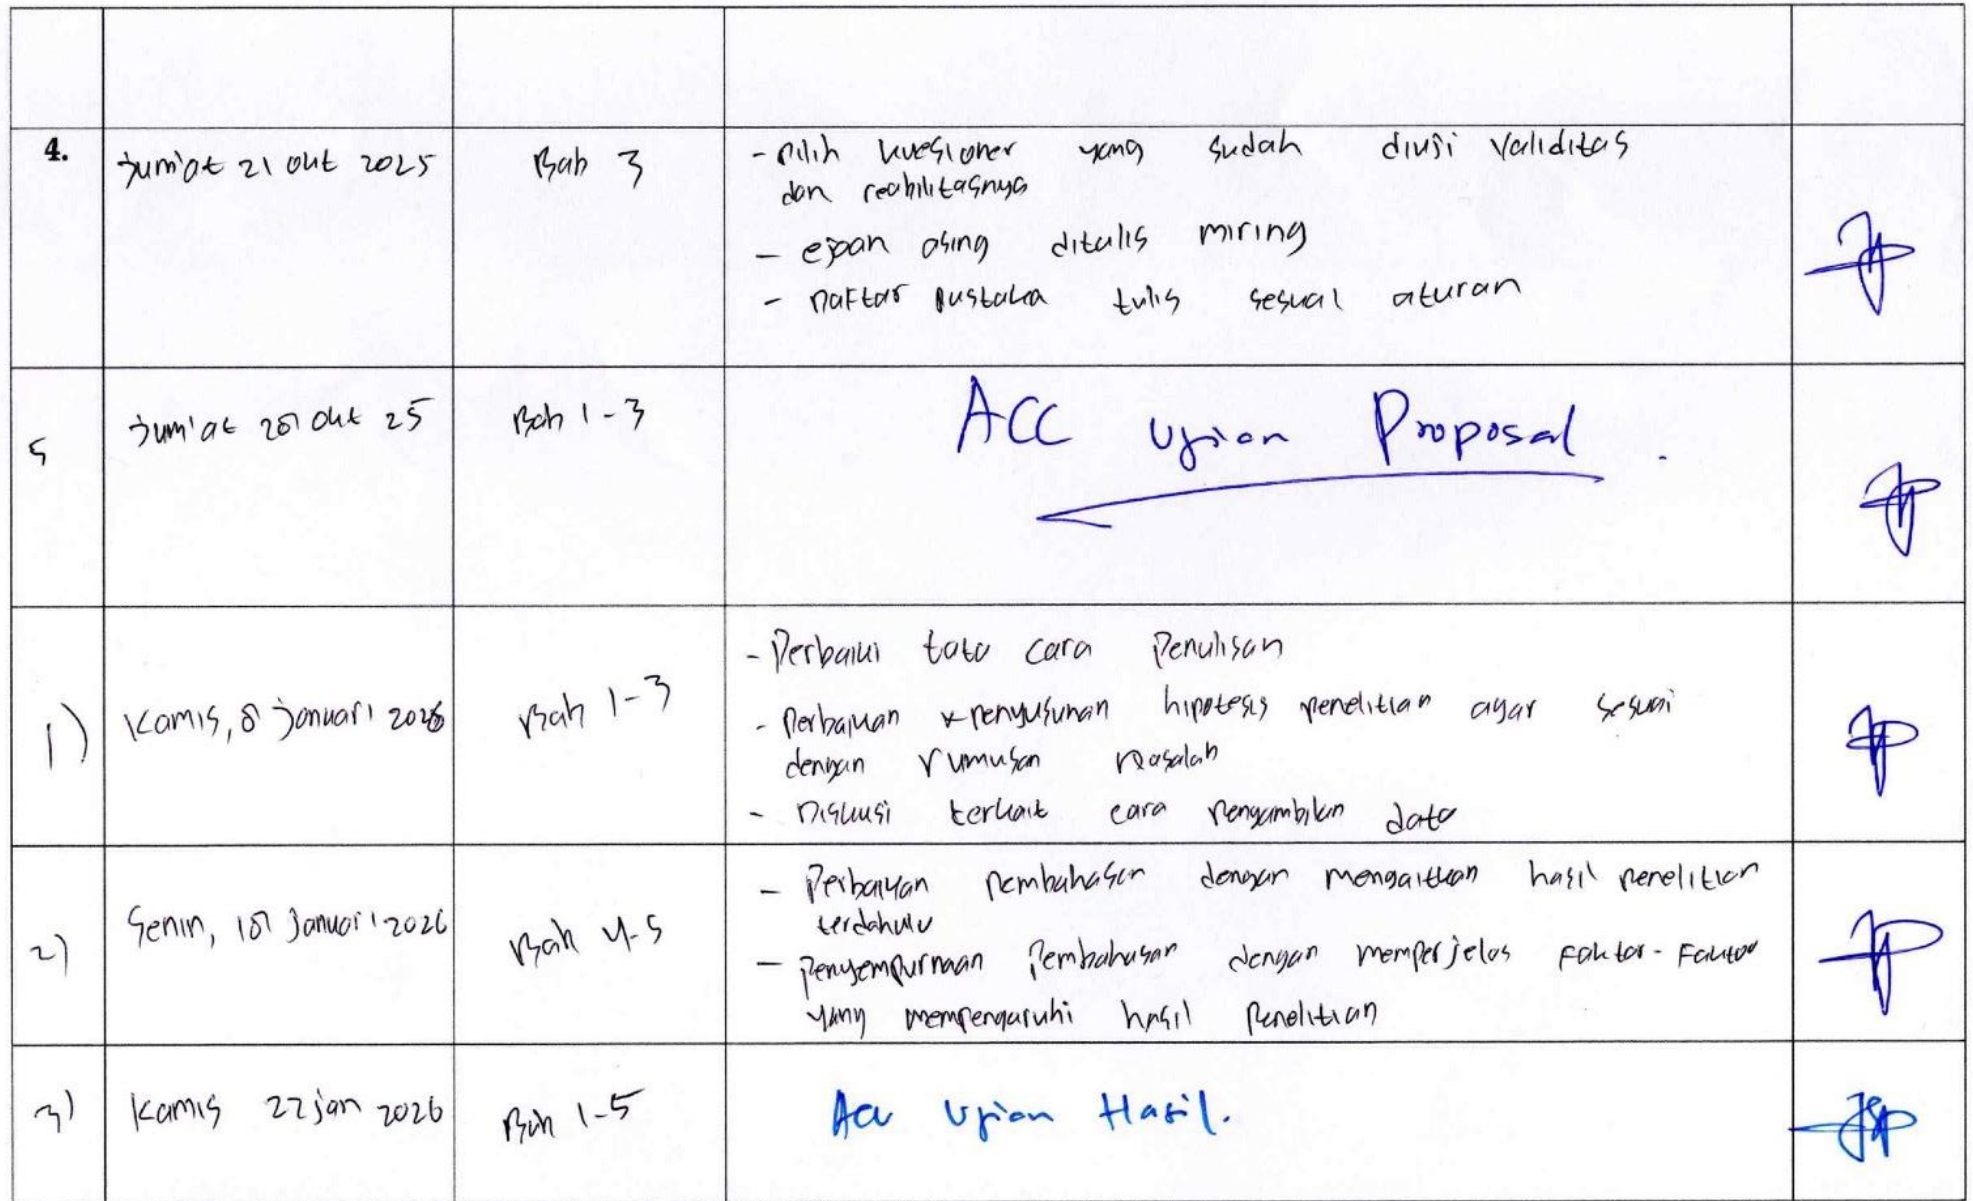 4. Jum'at 21 okt 2025 Bab 3 - Pilih kuesioner yang sudah diuji validitas
dan reabilitasnya
- ejaan asing ditulis miring
- Daftar pustaka tulis sesuai aturan
5 Jum'at 28 okt 25 Bab 1-3 ACC Ujian Proposal.
1) Kamis, 8 Januari 2026 Bab 1-3 - Perbaiki tata cara Penulisan
- Perbaikan penyusunan hipotesis penelitian agar sesuai
dengan rumusan masalah
- Diskusi terkait cara pengambilan data
2) Senin, 18 Januari 2026 Bab 4-5 - Perbaikan pembahasan dengan mengaitkan hasil penelitian
terdahulu
- Penyempurnaan Pembahasan dengan memperjelas faktor-faktor
yang mempengaruhi hasil penelitian
3) Kamis 22 jan 2026 Bab 1-5 Acc Ujian Hasil.